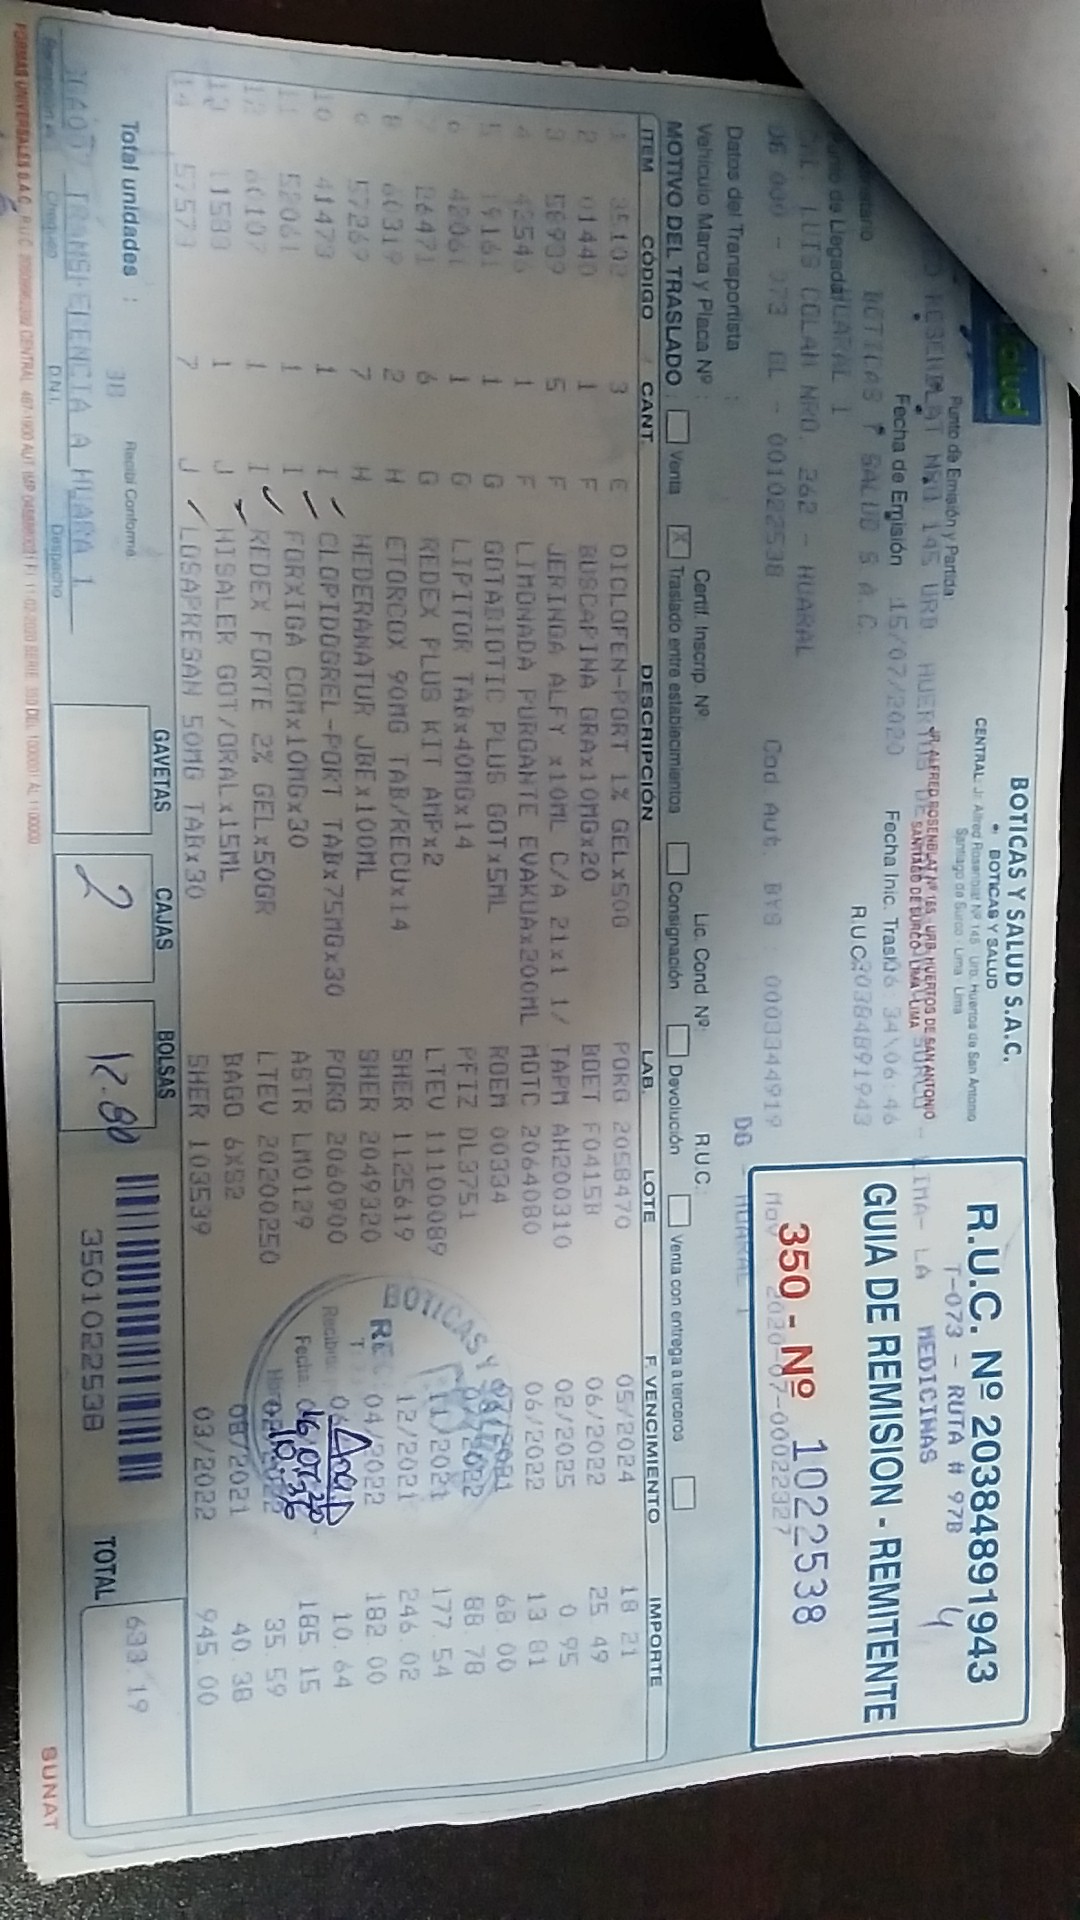 BOTICAS Y SALUD S.A.C.
BOTICAS Y SALUD
CENTRAL: Jr. Alfred Rosenblat Nº 145 Urb. Huertos de San Antonio
Santiago de Surco - Lima - Lima
R.U.C. Nº 20384891943
T-073 - RUTA # 97B
4
GUIA DE REMISION - REMITENTE
350 - Nº 1022538
Punto de Emisión y Partida:
NRO 145 URB. HUERTOS DE
LIMA- LA MEDICINAS
JR. ALFRED ROSENBLAT Nº 165 - URB. HUERTOS DE SAN ANTONIO
SANTIAGO DE SURCO - LIMA - LIMA
Fecha de Emisión 15/07/2020 Fecha Inic. Trasl.
BOTICAS Y SALUD S.A.C. R.U.C. 20384891943
de Llegada HUARAL 1
LUIS COLAN NRO. 262 - HUARAL
- 073 EL - 001022538 Cod. Aut. BYS : 0003344919
HUARAL 1
Datos del Transportista :
Vehículo Marca y Placa Nº : Certif. Inscrip. Nº: Lic. Cond. Nº: R.U.C.:
MOTIVO DEL TRASLADO : Venta X Traslado entre establecimientos Consignación Devolución Venta con entrega a terceros
ITEM CÓDIGO CANT. DESCRIPCIÓN LAB. LOTE F. VENCIMIENTO IMPORTE
1 35102 3 E DICLOFEN-PORT 1% GELx50G PORG 2058470 05/2024 18.21
2 01440 1 F BUSCAPINA GRAx10MGx20 BOET F0415B 06/2022 25.49
3 58939 5 F JERINGA ALFY x10ML C/A 21x1 1/ TAPM AH200310 02/2025 0.95
4 42546 1 F LIMONADA PURGANTE EVAKUAx200ML MOTC 2064080 06/2022 13.81
5 19161 1 G GOTABIOTIC PLUS GOTx5ML ROEM 00334 68.00
6 42061 1 G LIPITOR TABx40MGx14 PFIZ DL3751 88.78
7 26471 6 G REDEX PLUS KIT AMPx2 LTEV 11100089 11/2021 177.54
8 60319 2 H ETORCOX 90MG TAB/RECUx14 SHER 1125619 12/2021 246.02
9 57269 7 H HEDERANATUR JBEx100ML SHER 2049320 04/2022 182.00
10 41473 1 I CLOPIDOGREL-PORT TABx75MGx30 PORG 2060900 10.64
11 52061 1 I FORXIGA COMx10MGx30 ASTR LM0129 185.15
12 60107 1 I REDEX FORTE 2% GELx50GR LTEV 20200250 35.59
13 11583 1 J HISALER GOT/ORALx15ML BAGO 6XS2 08/2021 40.38
14 57573 7 J LOSAPRESAN 50MG TABx30 SHER 103539 03/2022 945.00
BOTICAS Y
Fecha: 16 07 20
10:36
Total unidades : 38
Recibí Conforme
GAVETAS CAJAS BOLSAS
2
3501022538
TOTAL
TRANSFERENCIA A HUARA 1
Chequeo D.N.I. Despacho
FORMAS UNIVERSALES S.A.C.
SUNAT